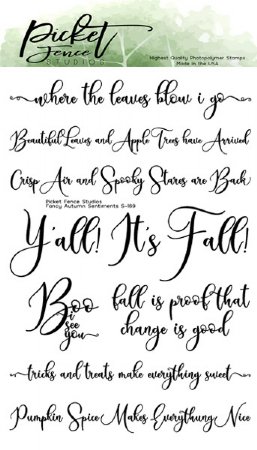 Picket
Fence
STUDIOS
Highest Quality Photopolymer Stamps
Made in the USA
where the leaves blow i go
Beautiful Leaves and Apple Trees have Arrived
Crisp Air and Spooky Stares are Back
Picket Fence Studios
Fancy Autumn Sentiments S-169
Y'all! It's Fall!
Boo
i
see
you
fall is proof that
change is good
tricks and treats make everything sweet
Pumpkin Spice Makes Everythung Nice